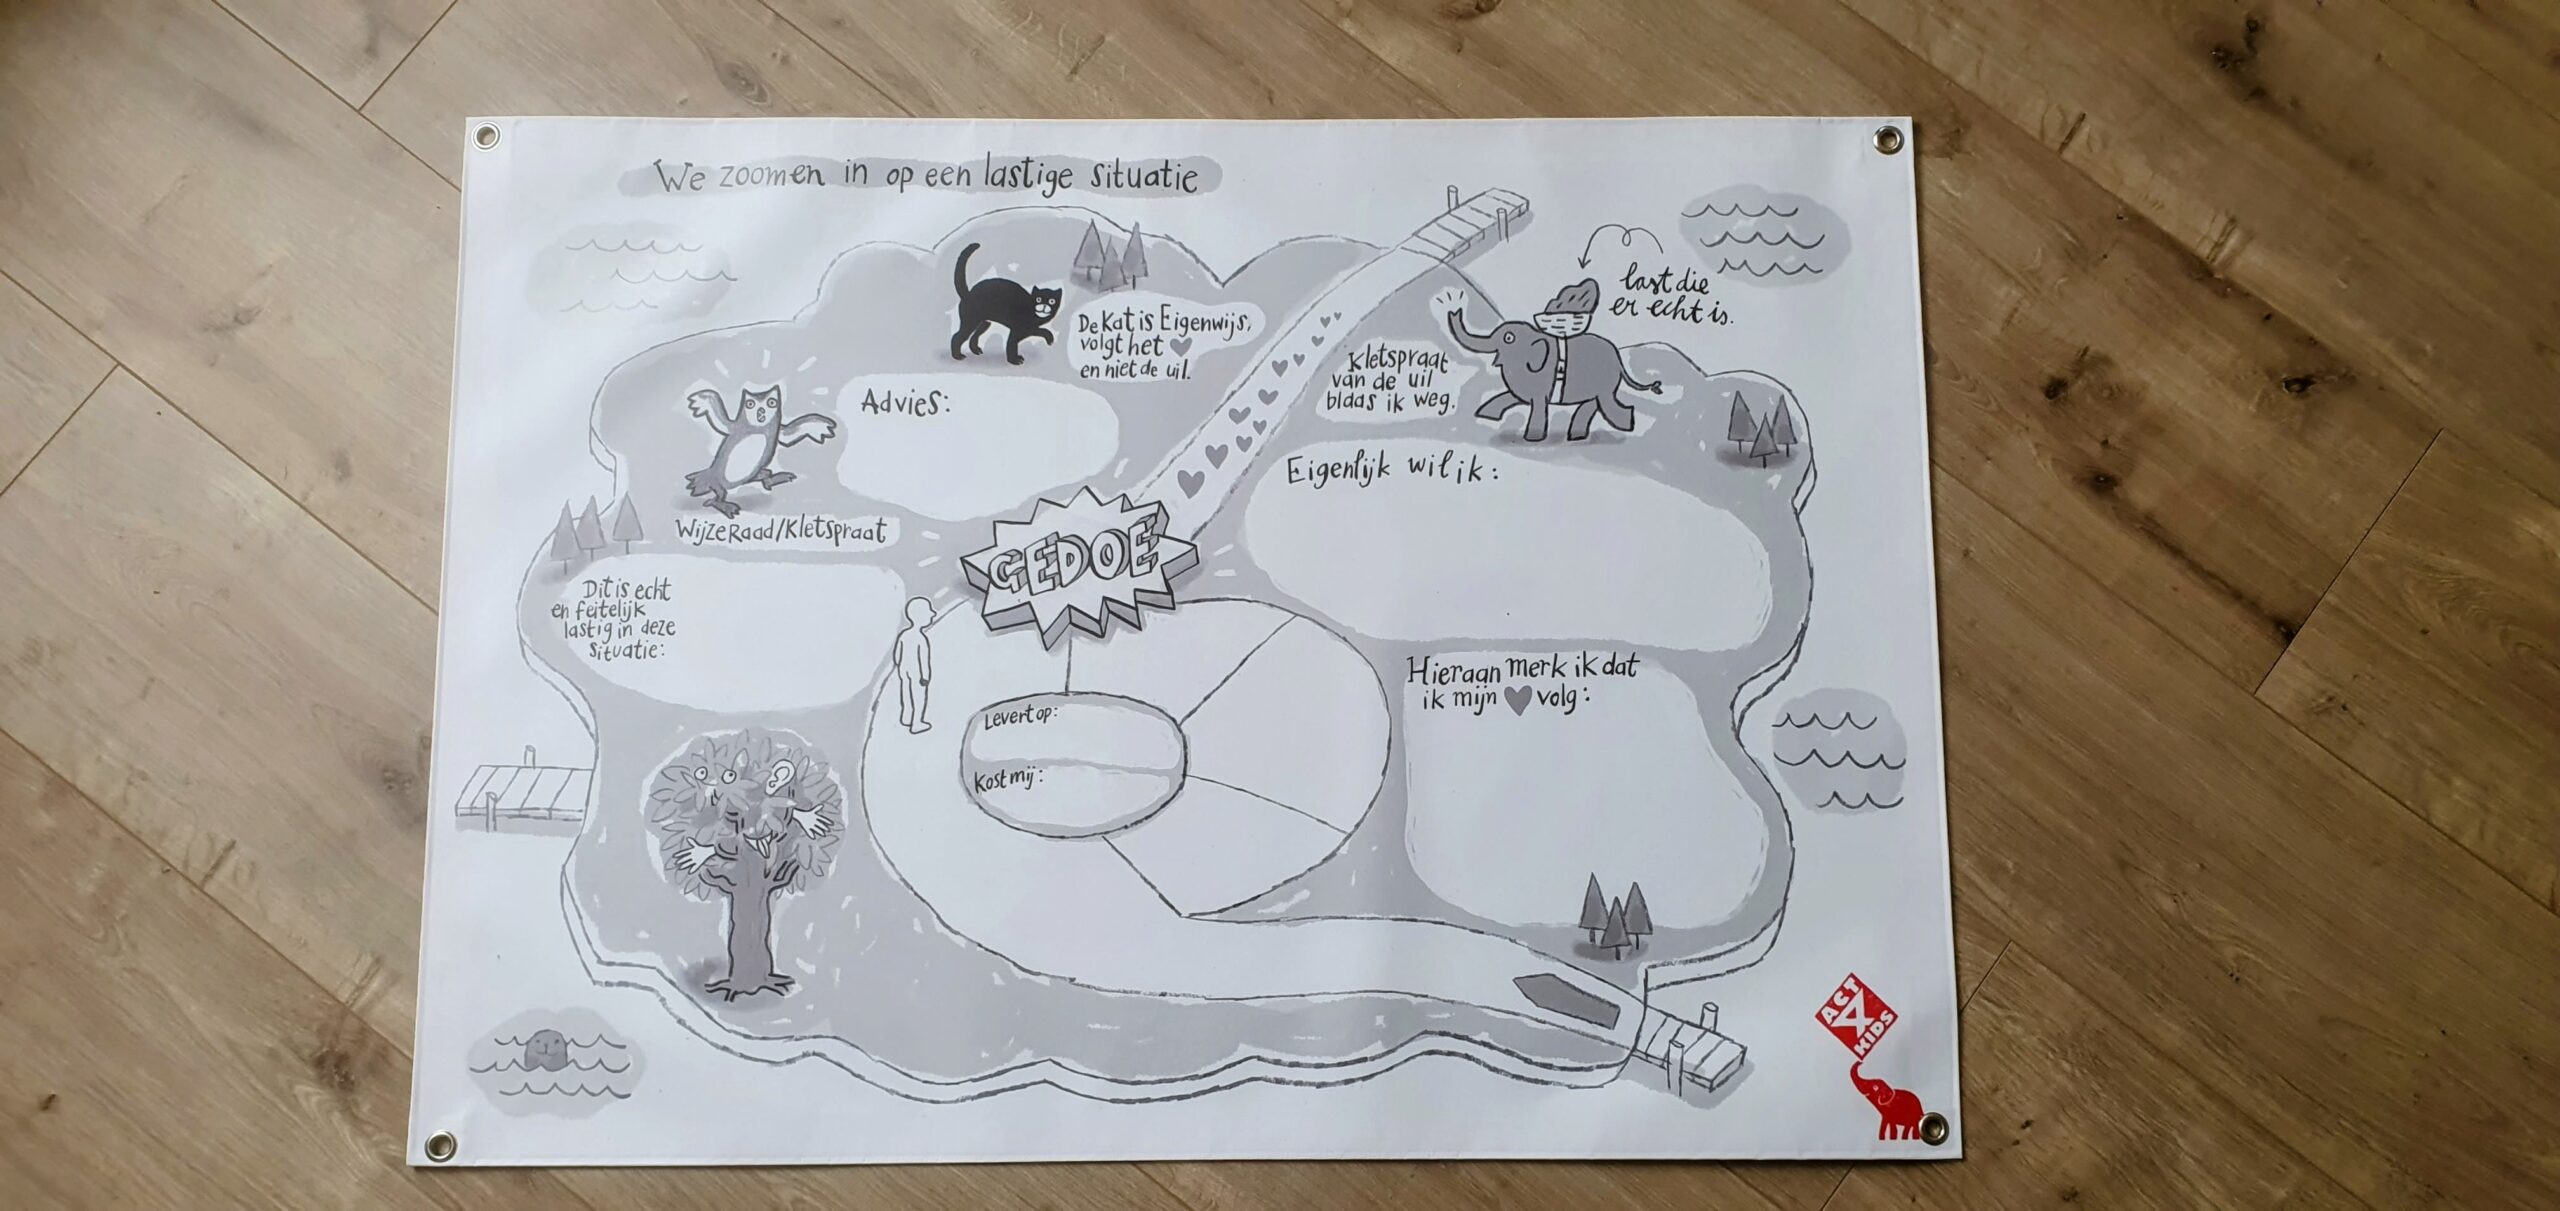 We zoomen in op een lastige situatie
De Kat is Eigenwijs,
volgt het
en niet de uil.
last die
er echt is.
Kletspraat
van de uil
blaas ik weg.
Advies:
Wijze Raad/Kletspraat
Eigenlijk wil ik:
GEDOE
Dit is echt
en feitelijk
lastig in deze
situatie:
Hieraan merk ik dat
ik mijn volg:
Levert op:
Kost mij:
ACT
4
KIDS